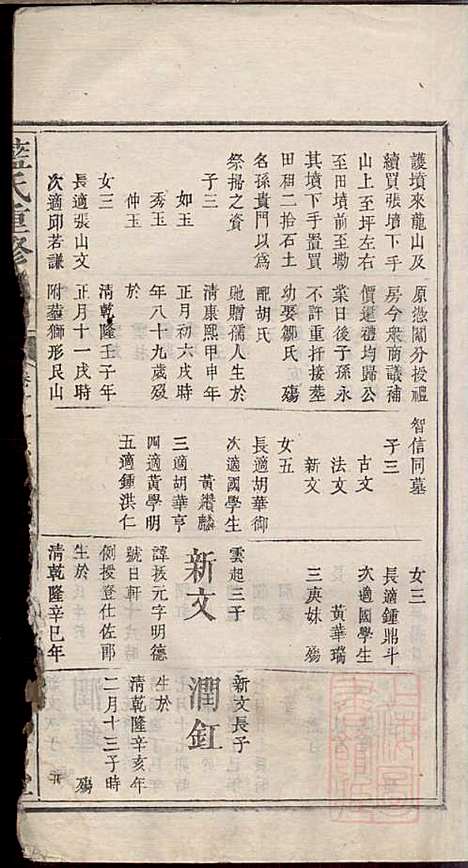 護墳來龍山及
續買張墳下手
山上至坪左右
至田墳前至塝
其墳下手置買
田租二拾石土
名孫貴門以爲
祭掃之資
子三
如玉
秀玉
仲玉
女三
長適張山文
次適邱若謙
原憑鬮分授禮
房今衆商議補
價還禮均歸公
業日後子孫永
不許重扦接塟
幼娶鄒氏 殤
配胡氏
貤贈儒人生於
清康熙甲申年
正月初六戌時
年八十九歲殁
於
清乾隆壬子年
正月十一戌時
附塟獅形艮山
智信同墓
子三
古文
法文
新文
女五
長適胡華御
次適國學生
黃鑽麟
三適胡華亨
四適黃學明
五適鍾洪仁
女三
長適鍾鼎斗
次適國學生
黃華瑞
三庚妹 殤
雲起三子
新文
譯振元字明德
號日軒
例授登仕佐郎
生於
清乾隆辛巳年
新文長子
潤釭
生於
清乾隆辛亥年
二月十三子時
殤
藍氏重修